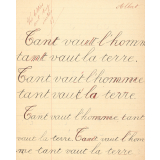 Tant vaut l'homme
tant vaut la terre.
Tant vaut l'homme
tant vaut la terre.
Tant vaut l'homme tant
vaut la terre. Tant vaut l'homme
tant vaut la terre.